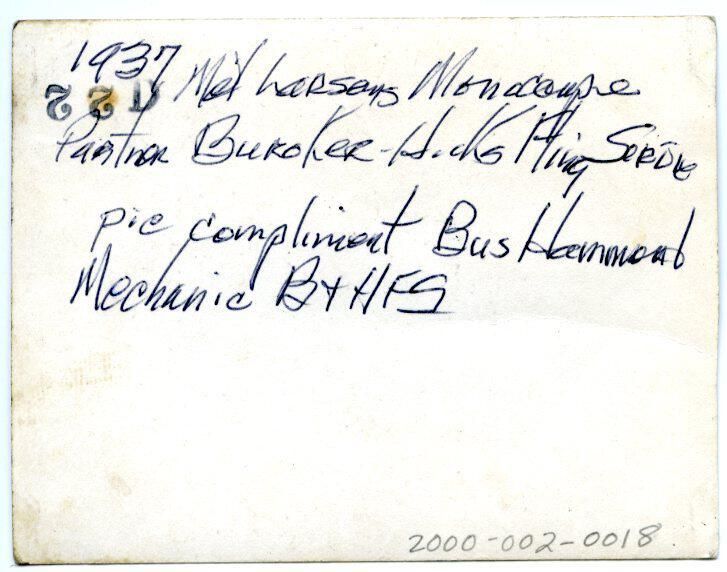 1937 Mel Larsens Monocoupe
Partner Buroker-Hicks Flying Service
pic compliment Bus Hammond
Mechanic B+HFS
2000-002-0018